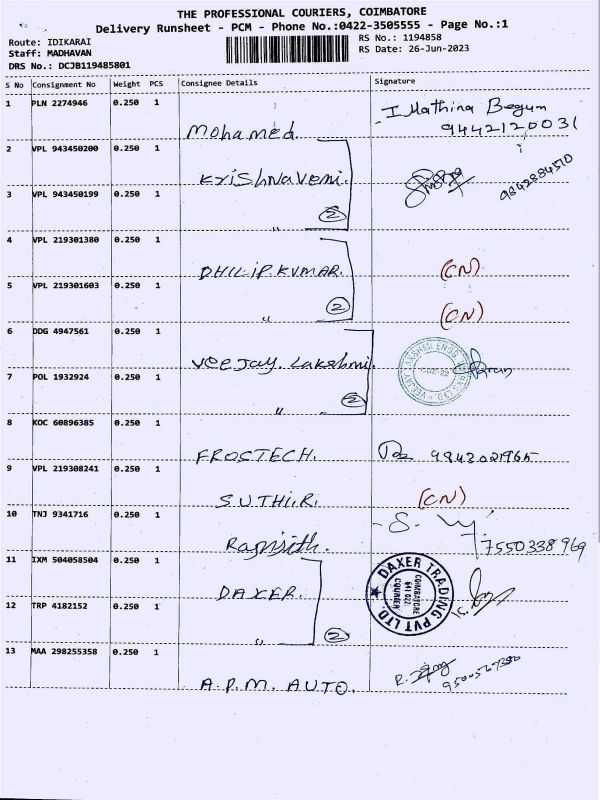 THE PROFESSIONAL COURIERS, COIMBATORE
Delivery Runsheet - PCM - Phone No.:0422-3505555 - Page No.:1
Route: IDIKARAI
Staff: MADHAVAN
DRS No.: DCJB119485801
RS No.: 1194858
RS Date: 26-Jun-2023
S No Consignment No Weight PCS Consignee Details Signature
1 PLN 2274946 0.250 1 Mohamed. I Mathina Begum
9442120031
2 VPL 943450200 0.250 1 Krishnaveni. 9842884510
3 VPL 943450199 0.250 1 2
4 VPL 219301380 0.250 1 DHILIP.KUMAR. (CN)
5 VPL 219301603 0.250 1 " 2 (CN)
6 DDG 4947561 0.250 1 Veejay. Lakshmi.
7 POL 1932924 0.250 1 " 2
8 KOC 60896385 0.250 1 FROGTECH. 9843021965
9 VPL 219308241 0.250 1 SUTHI.R. (CN)
10 TNJ 9341716 0.250 1 Ranjith. 7550338969
11 IXM 504058504 0.250 1 DAXER.
DAXER TRADING PVT LTD
COIMBATORE
641 022
COURIER
12 TRP 4182152 0.250 1 " 2
13 MAA 298255358 0.250 1 A.P.M. AUTO.